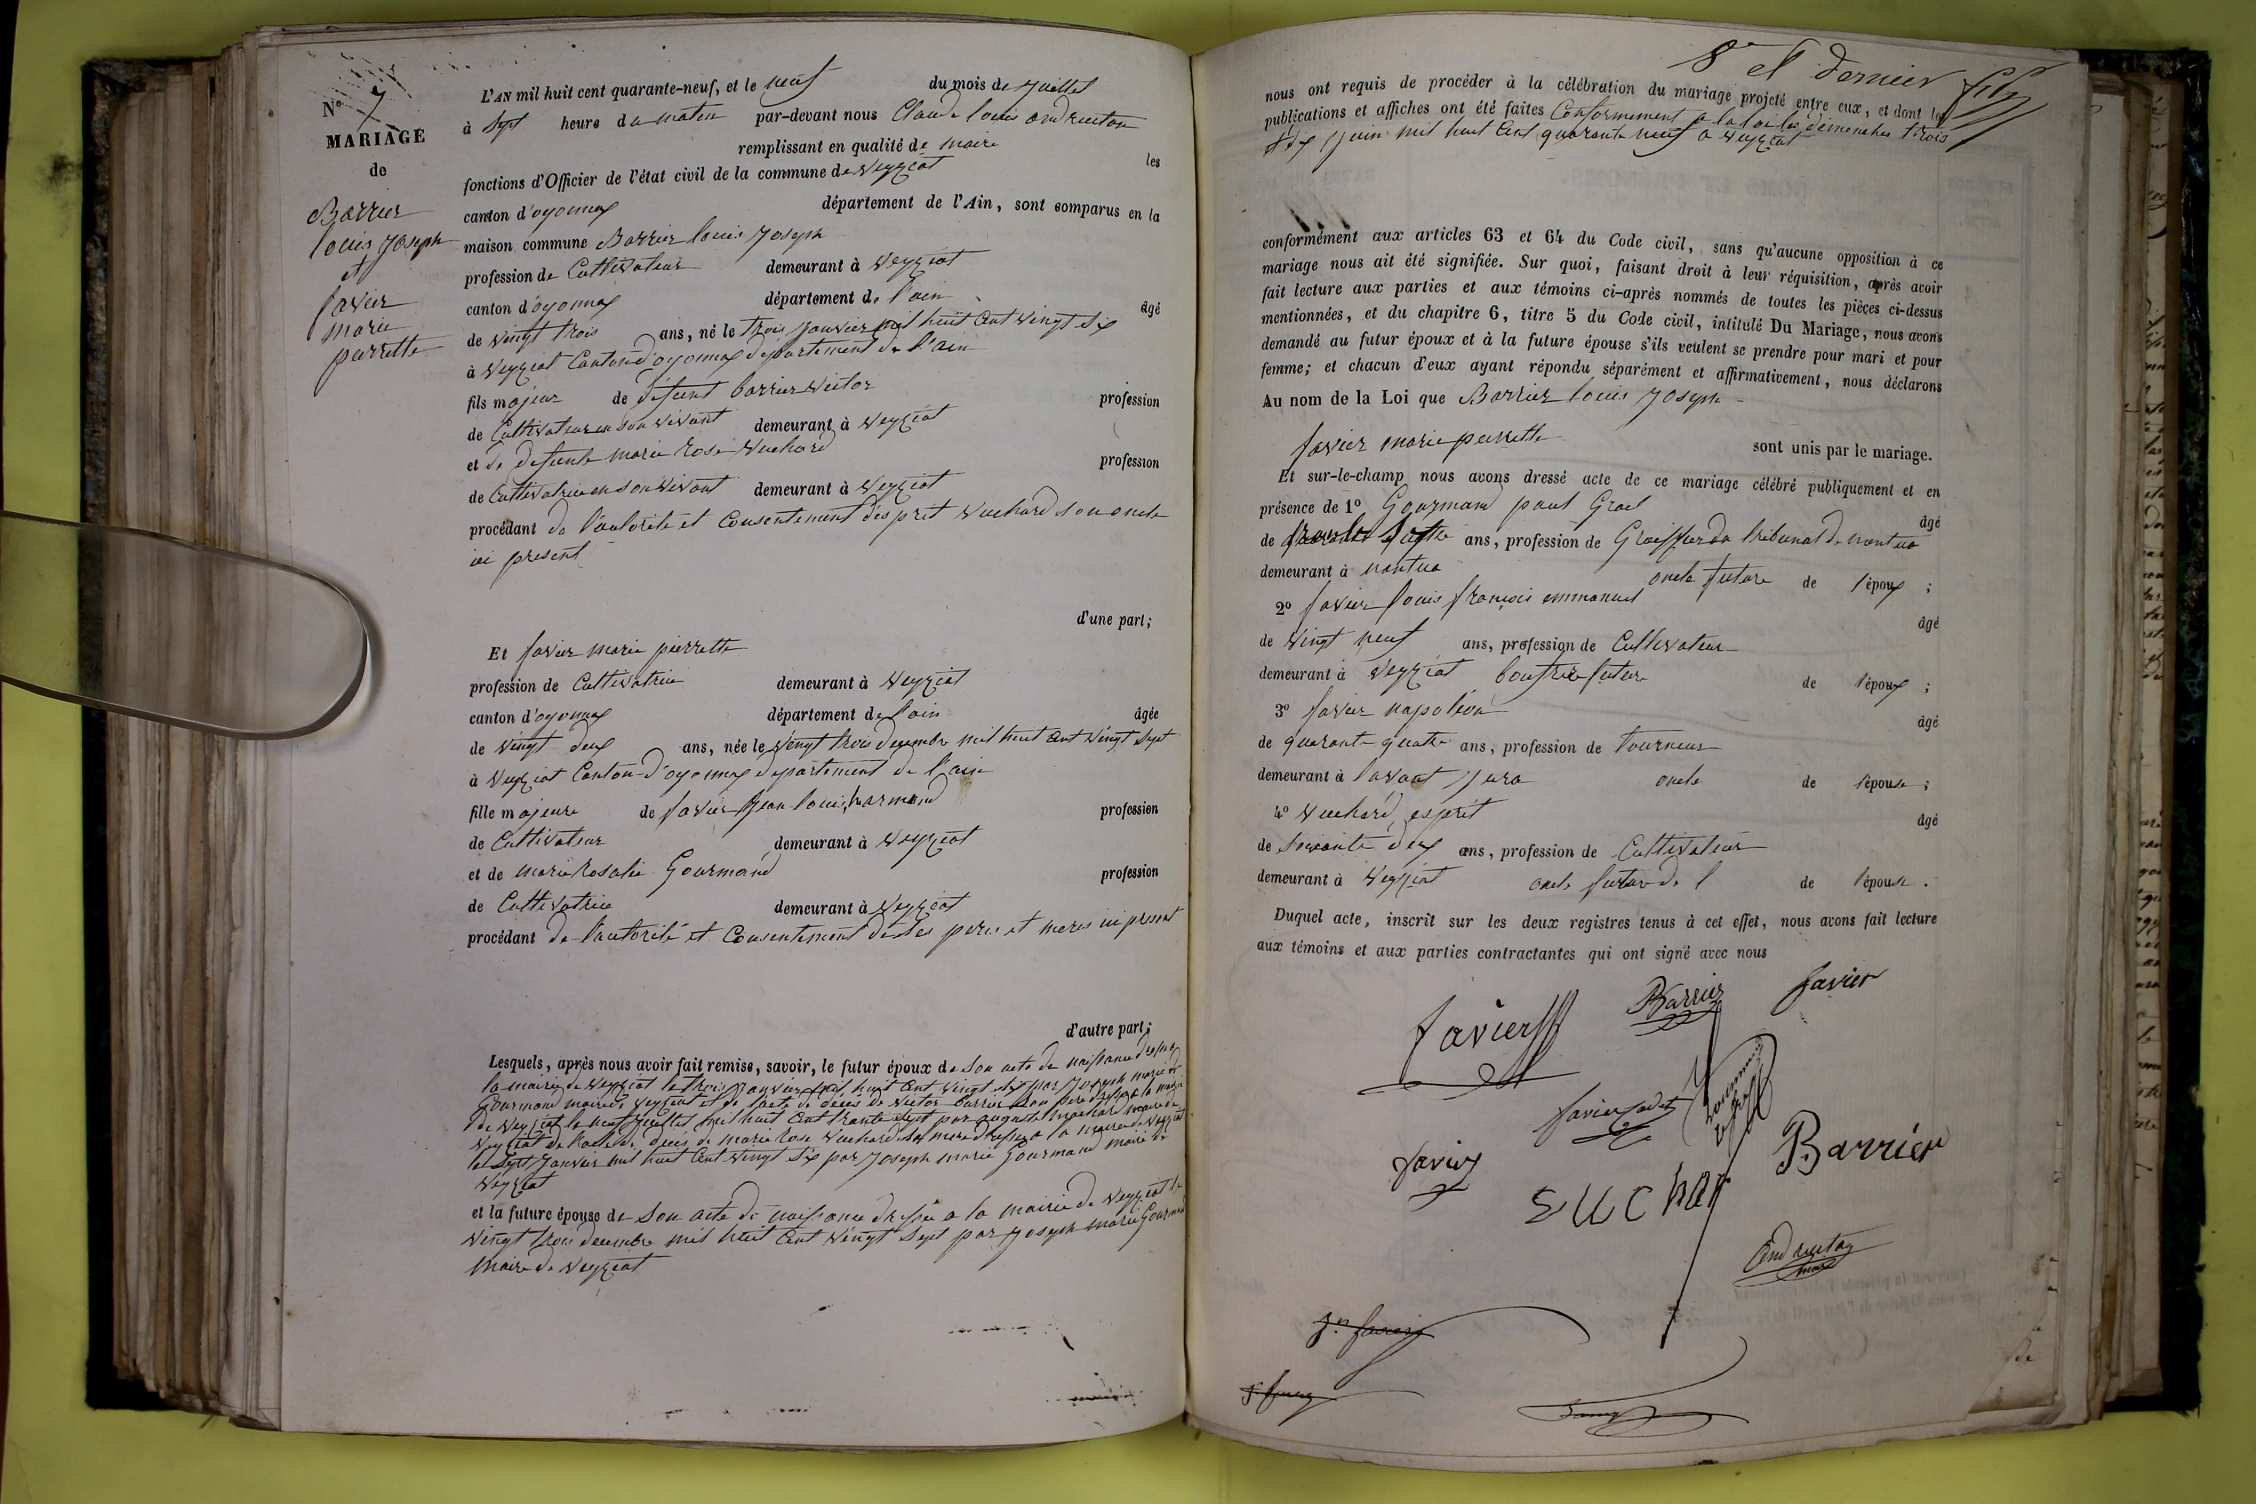 N° 7
MARIAGE
de
Barrier
louis Joseph
et
favier
marie
perrette
L'AN mil huit cent quarante-neuf, et le neuf du mois de Juillet
à sept heure du matin par-devant nous Claude louis andruetan
remplissant en qualité de maire les
fonctions d'Officier de l'état civil de la commune de Veyziat
canton d'oyonnax département de l'Ain, sont comparus en la
maison commune Barrier louis Joseph
profession de Cultivateur demeurant à Veyziat
canton d'oyonnax département de l'ain âgé
de vingt trois ans, né le trois janvier mil huit cent vingt six
à Veyziat Canton d'oyonnax département de l'ain
fils majeur de défunt barrier victor profession
de Cultivateur en son vivant demeurant à Veyziat
et de defunte marie rose Vuchard profession
de Cultivatrice en son vivant demeurant à Veyziat
procédant de l'autorité et consentement d'esprit Vuchard son oncle
ici présent
d'une part;
Et favier marie pierrette
profession de Cultivatrice demeurant à Veyziat
canton d'oyonnax département de l'ain âgée
de vingt deux ans, née le vingt trois decembre mil huit cent vingt sept
à Veyziat Canton d'oyonnax departement de l'ain
fille majeure de favier jean louis harmand profession
de Cultivateur demeurant à Veyziat
et de marie Rosalie Gourmand profession
de Cultivatrice demeurant à Veyziat
procédant de l'autorité et consentement de ses peres et meres ici present
d'autre part;
Lesquels, après nous avoir fait remise, savoir, le futur époux de son acte de naissance
la mairie de Veyziat le trois janvier mil huit cent vingt six par Joseph marie
Gourmand maire de Veyziat et de l'acte de décès de victor barrier son pere
de Veyziat le neuf juillet mil huit cent trente sept par auguste maire de
Veyziat de l'acte de décès de marie rose Vuchard sa mere dressé a la mairie de Veyziat
le sept janvier mil huit cent vingt six par Joseph marie Gourmand maire de
Veyziat
et la future épouse de son acte de naissance dressée a la mairie de Veyziat le
vingt trois decembre mil huit cent vingt sept par joseph marie Gourmand
maire de Veyziat
8e et dernier
nous ont requis de procéder à la célébration du mariage projeté entre eux, et dont les
publications et affiches ont été faites Conformement a la loi les dimanches trois
& dix juin mil huit cent quarante neuf a Veyziat
conformément aux articles 63 et 64 du Code civil, sans qu'aucune opposition à ce
mariage nous ait été signifiée. Sur quoi, faisant droit à leur réquisition, après avoir
fait lecture aux parties et aux témoins ci-après nommés de toutes les pièces ci-dessus
mentionnées, et du chapitre 6, titre 5 du Code civil, intitulé Du Mariage, nous avons
demandé au futur époux et à la future épouse s'ils veulent se prendre pour mari et pour
femme; et chacun d'eux ayant répondu séparément et affirmativement, nous déclarons
Au nom de la Loi que Barrier louis Joseph
favier marie perrette sont unis par le mariage.
Et sur-le-champ nous avons dressé acte de ce mariage célébré publiquement et en
présence de 1° Gourmand paul âgé
de ans, profession de Greffier du tribunal de nantua
demeurant à nantua oncle future de l'époux ;
2° favier louis françois emmanuel âgé
de vingt neuf ans, profession de Cultivateur
demeurant à Veyziat future de l'époux ;
3° favier napoléon âgé
de quarante quatre ans, profession de tourneur
demeurant à lavant jura oncle de l'épouse ;
4° Vuchard, esprit âgé
de soixante dix ans, profession de Cultivateur
demeurant à Veyziat oncle future de l de l'épouse.
Duquel acte, inscrit sur les deux registres tenus à cet effet, nous avons fait lecture
aux témoins et aux parties contractantes qui ont signé avec nous
favier Barrier favier
favier cadet
favier Barrier
andruetan
maire